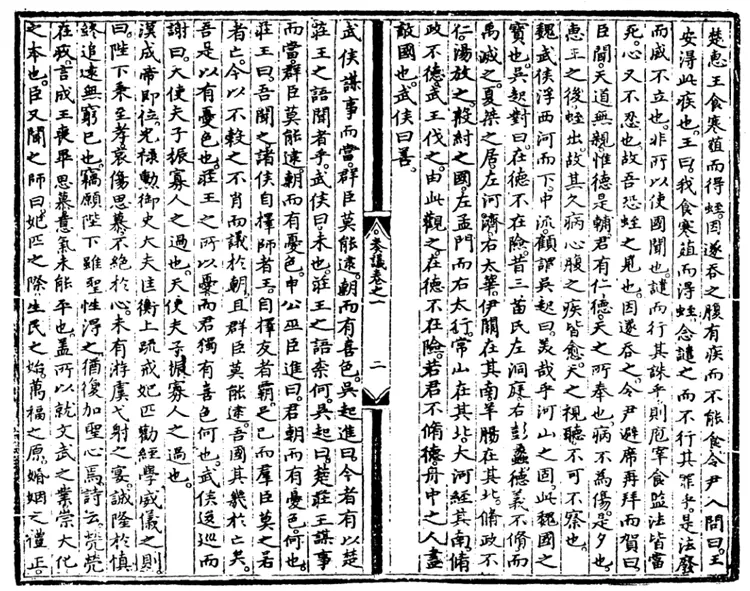 楚惠王食寒菹而得蛭。因遂吞之腹有疾而不能食令尹入問曰。王
安得此疾也。王曰。我食寒菹而得蛭。念譴之而不行其罪乎。是法廢
而威不立也。非所以使國聞也。譴而行其誅乎。則庖宰食監法皆當
死。心又不忍也。故吾恐蛭之見也。因遂吞之。令尹避席再拜而賀曰
臣聞天道無親惟德是輔君有仁德。天之所奉也。病不為傷。是夕也。
惠王之後蛭出。故其久病心腹之疾皆愈。天之視聽不可不察也。
魏武侯浮西河而下。中流。顧謂吳起曰。美哉乎河山之固。此魏國之
寶也。吳起對曰。在德不在險。昔三苗氏左洞庭。右彭蠡德義不脩而
禹滅之。夏桀之居左河濟。右太華。伊闕在其南羊腸在其北。脩政不
仁湯放之。殷紂之國。左孟門而右太行。常山在其北。大河經其南。脩
政不德。武王伐之。由此觀之。在德不在險。若君不脩德。舟中之人盡
敵國也。武侯曰善。
卷一 二
武侯謀事而當。群臣莫能逮。朝而有喜色。吳起進曰。今者有以楚
莊王之語聞者乎。武侯曰。未也。莊王之語柰何。吳起曰。楚莊王謀事
而當。群臣莫能逮。朝而有憂色。申公巫臣進曰。君朝而有憂色。何也。
莊王曰。吾聞之。諸侯自擇師者王。自擇友者霸。足已而羣臣莫之若
者亡。今以不穀之不肖而議於朝。且群臣莫能逮。吾國其幾於亡矣。
吾是以有憂色也。莊王之所以憂而君獨有喜色何也。武侯逡巡而
謝曰。天使夫子振寡人之過也。天使夫子振寡人之過也。
漢成帝即位。光祿勳御史大夫匡衡上疏戒妃匹勸經學威儀之則
曰。陛下秉至孝。哀傷思慕。不絕於心。未有游虞弋射之宴。誠隆於慎
終追遠無窮已也。竊願陛下雖聖性得之。猶復加聖心焉詩云。煢煢
在疚。言成王喪畢思慕意氣未能平也。盖所以就文武之業崇大化
之本也。臣又聞之師曰。妃匹之際生民之始萬福之原。婚姻之禮正。